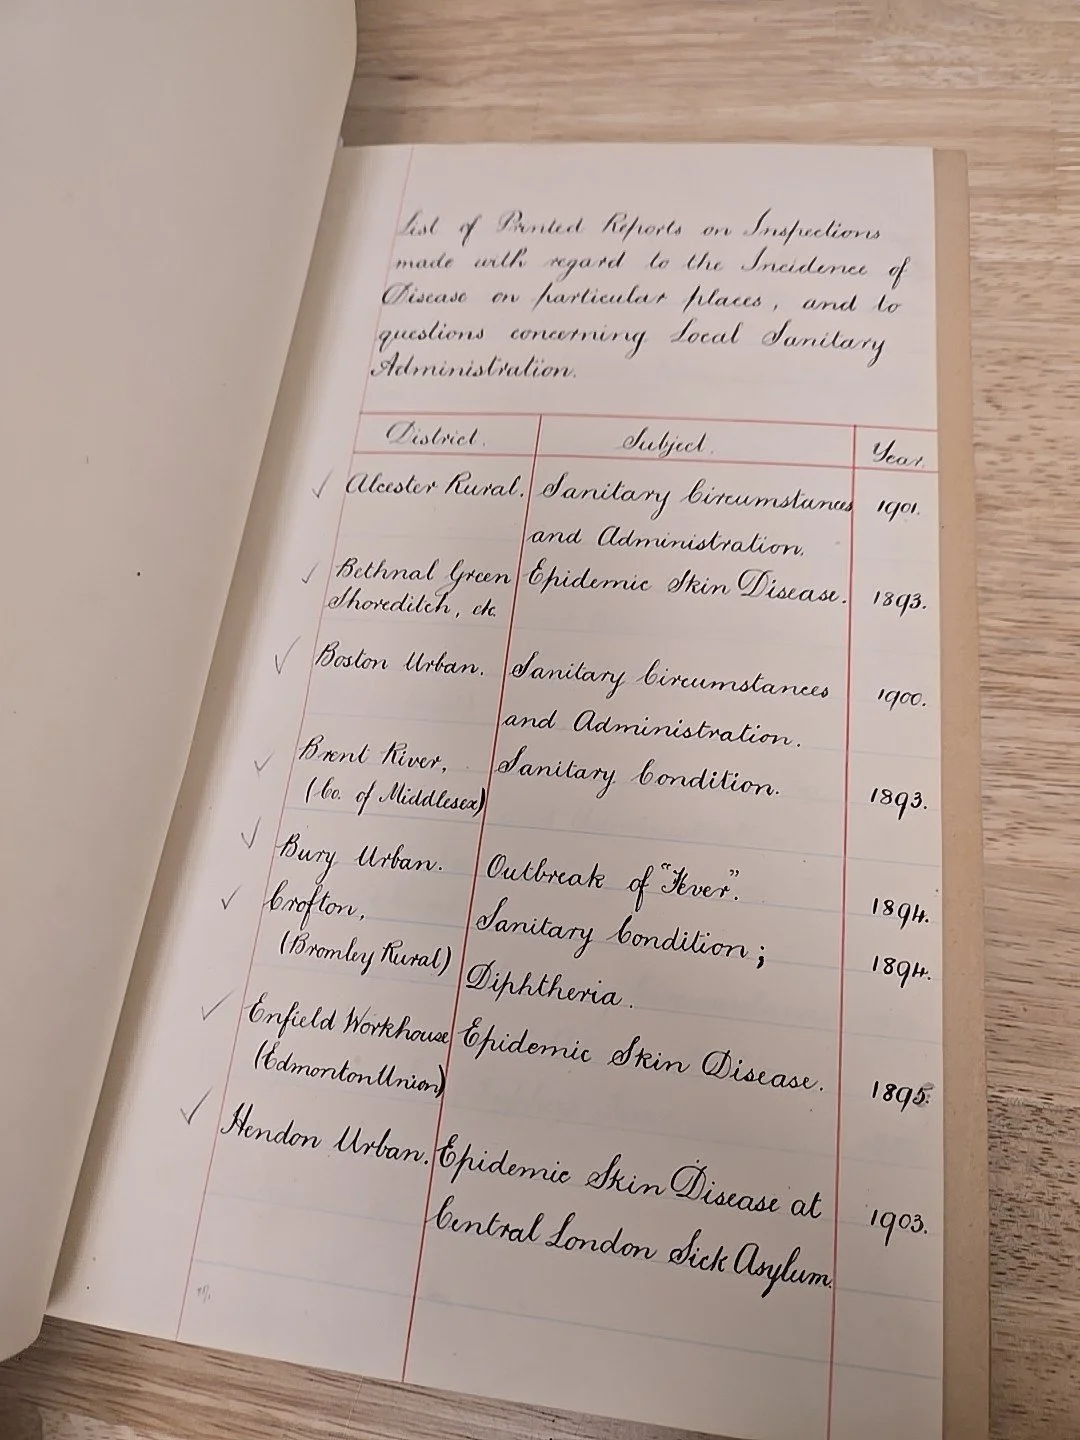 List of Printed Reports on Inspections
made with regard to the Incidence of
Disease on particular places, and to
questions concerning Local Sanitary
Administration.
District. Subject. Year.
Alcester Rural. Sanitary Circumstances 1901.
and Administration.
Bethnal Green Epidemic Skin Disease. 1893.
Shoreditch, etc.
Boston Urban. Sanitary Circumstances 1900.
and Administration.
Brent River, Sanitary Condition. 1893.
(Co. of Middlesex)
Bury Urban. Outbreak of "Fever". 1894.
Crofton, Sanitary Condition; 1894.
(Bromley Rural) Diphtheria.
Enfield Workhouse Epidemic Skin Disease. 1895.
(Edmonton Union)
Hendon Urban. Epidemic Skin Disease at 1903.
Central London Sick Asylum.